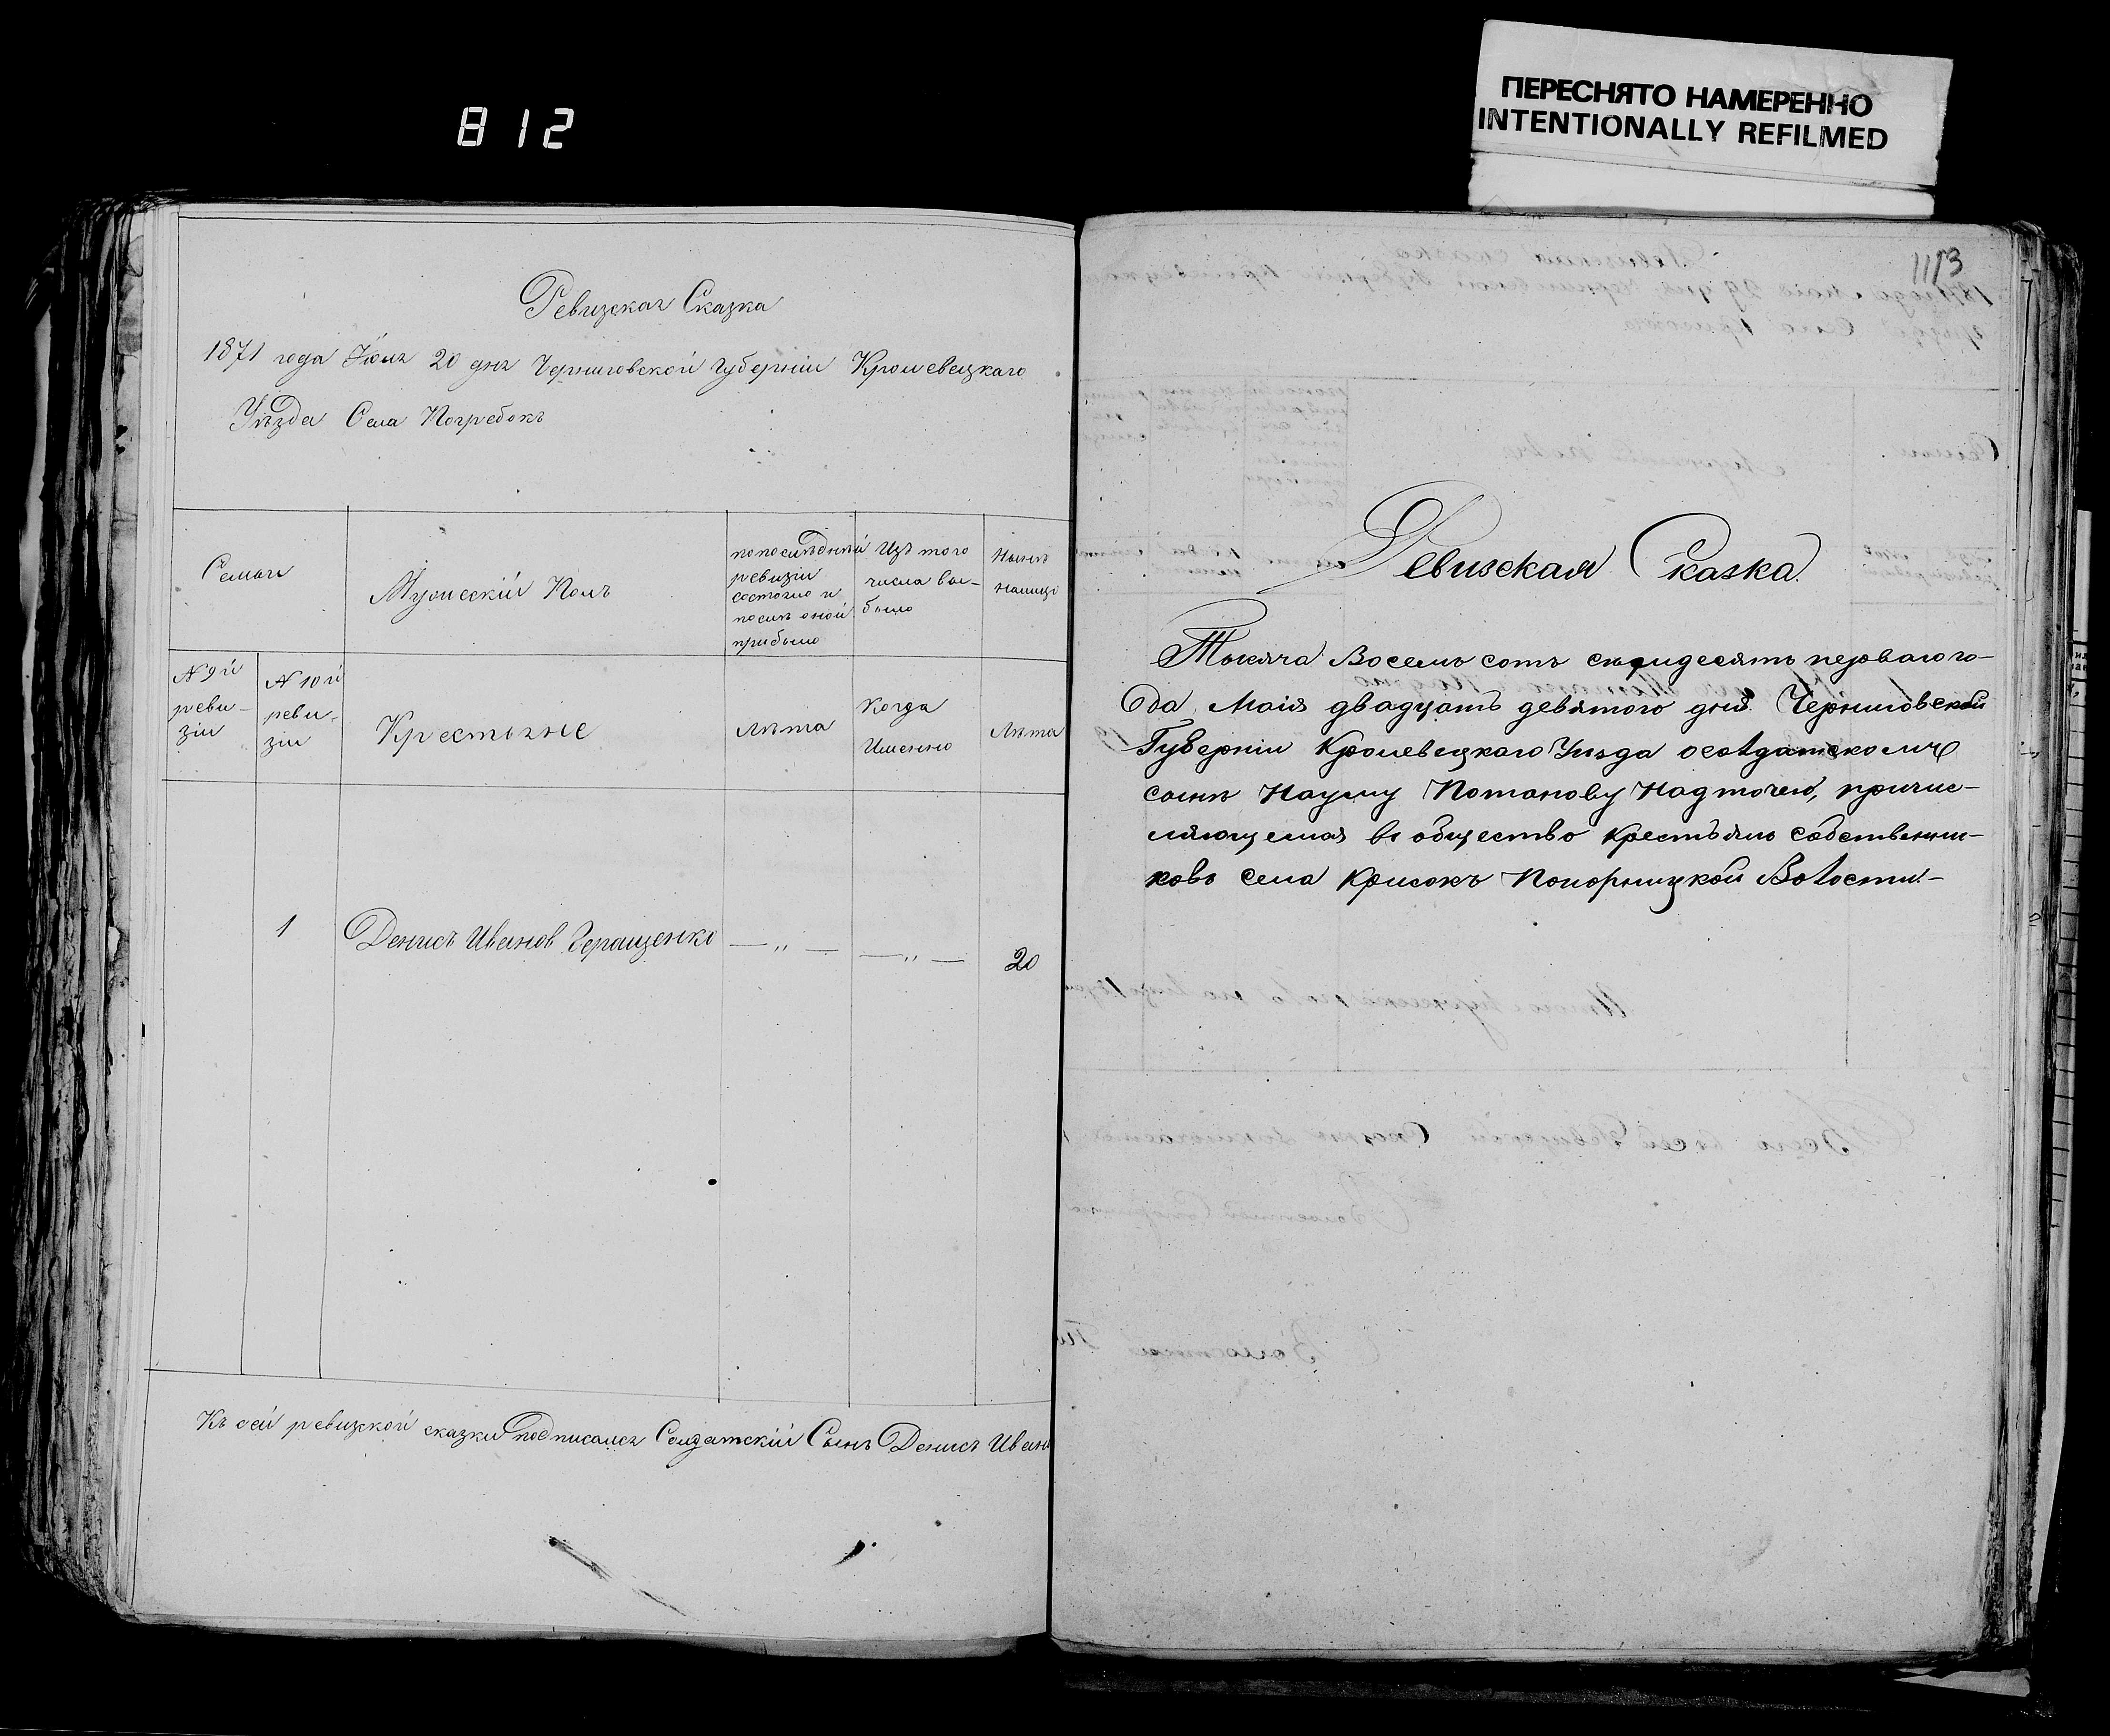 812
ПЕРЕСНЯТО НАМЕРЕННО
INTENTIONALLY REFILMED
Ревизская Сказка
1871 года Іюля 20 дня Черниговской губерніи Кролевецкаго
Уѣзда Села Погребокъ
Семьи
Мужескій Полъ
по послѣдней
ревизіи
состояло и
послѣ оной
прибыло
Изъ того
числа вы-
было
Нынѣ
налицо
N 9й
реви-
зіи
N 10й
реви-
зіи
Крестьяне
Лѣта
Когда
Именно
Лѣта
1 Денисъ Иванов Геращенко — „ — — „ — 20
Къ сей ревизкой сказки подписался Солдатскій Сынъ Денисъ Иван
1113
Ревизская Сказка
Тысяча Восемь сотъ семдесятъ перваго го-
да Маія двадцать девятого дня Черниговской
Губерніи Кролевецкаго Уѣзда о солдатскомъ
сынѣ Науму Потапову Надточею, причис-
ляющемся въ общество крестьянъ собственни-
ковъ села Крисокъ Понорницкой Волости.-